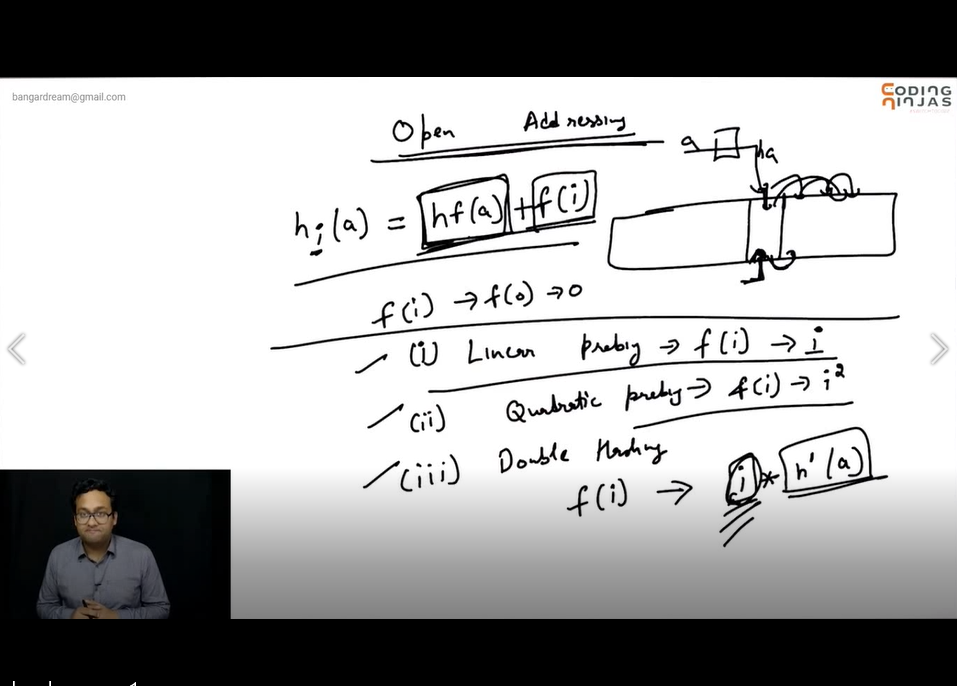 bangardream@gmail.com
CODING
NINJAS
Open Addressing
a
ha
hi(a) = hf(a) + f(i)
f(i) → f(0) → 0
(i) Linear probing → f(i) → i
(ii) Quadratic probing → f(i) → i²
(iii) Double Hashing
f(i) → i * h'(a)